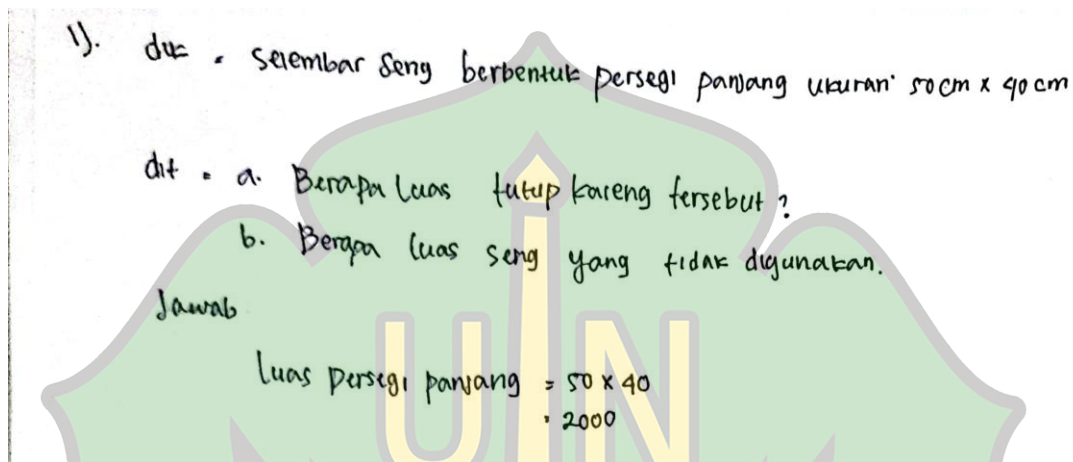 1). dik = selembar seng berbentuk persegi panjang ukuran 50 cm x 40 cm
dit = a. Berapa luas tutup kaleng tersebut?
b. Berapa luas seng yang tidak digunakan.
Jawab
luas persegi panjang = 50 x 40
= 2000
UIN